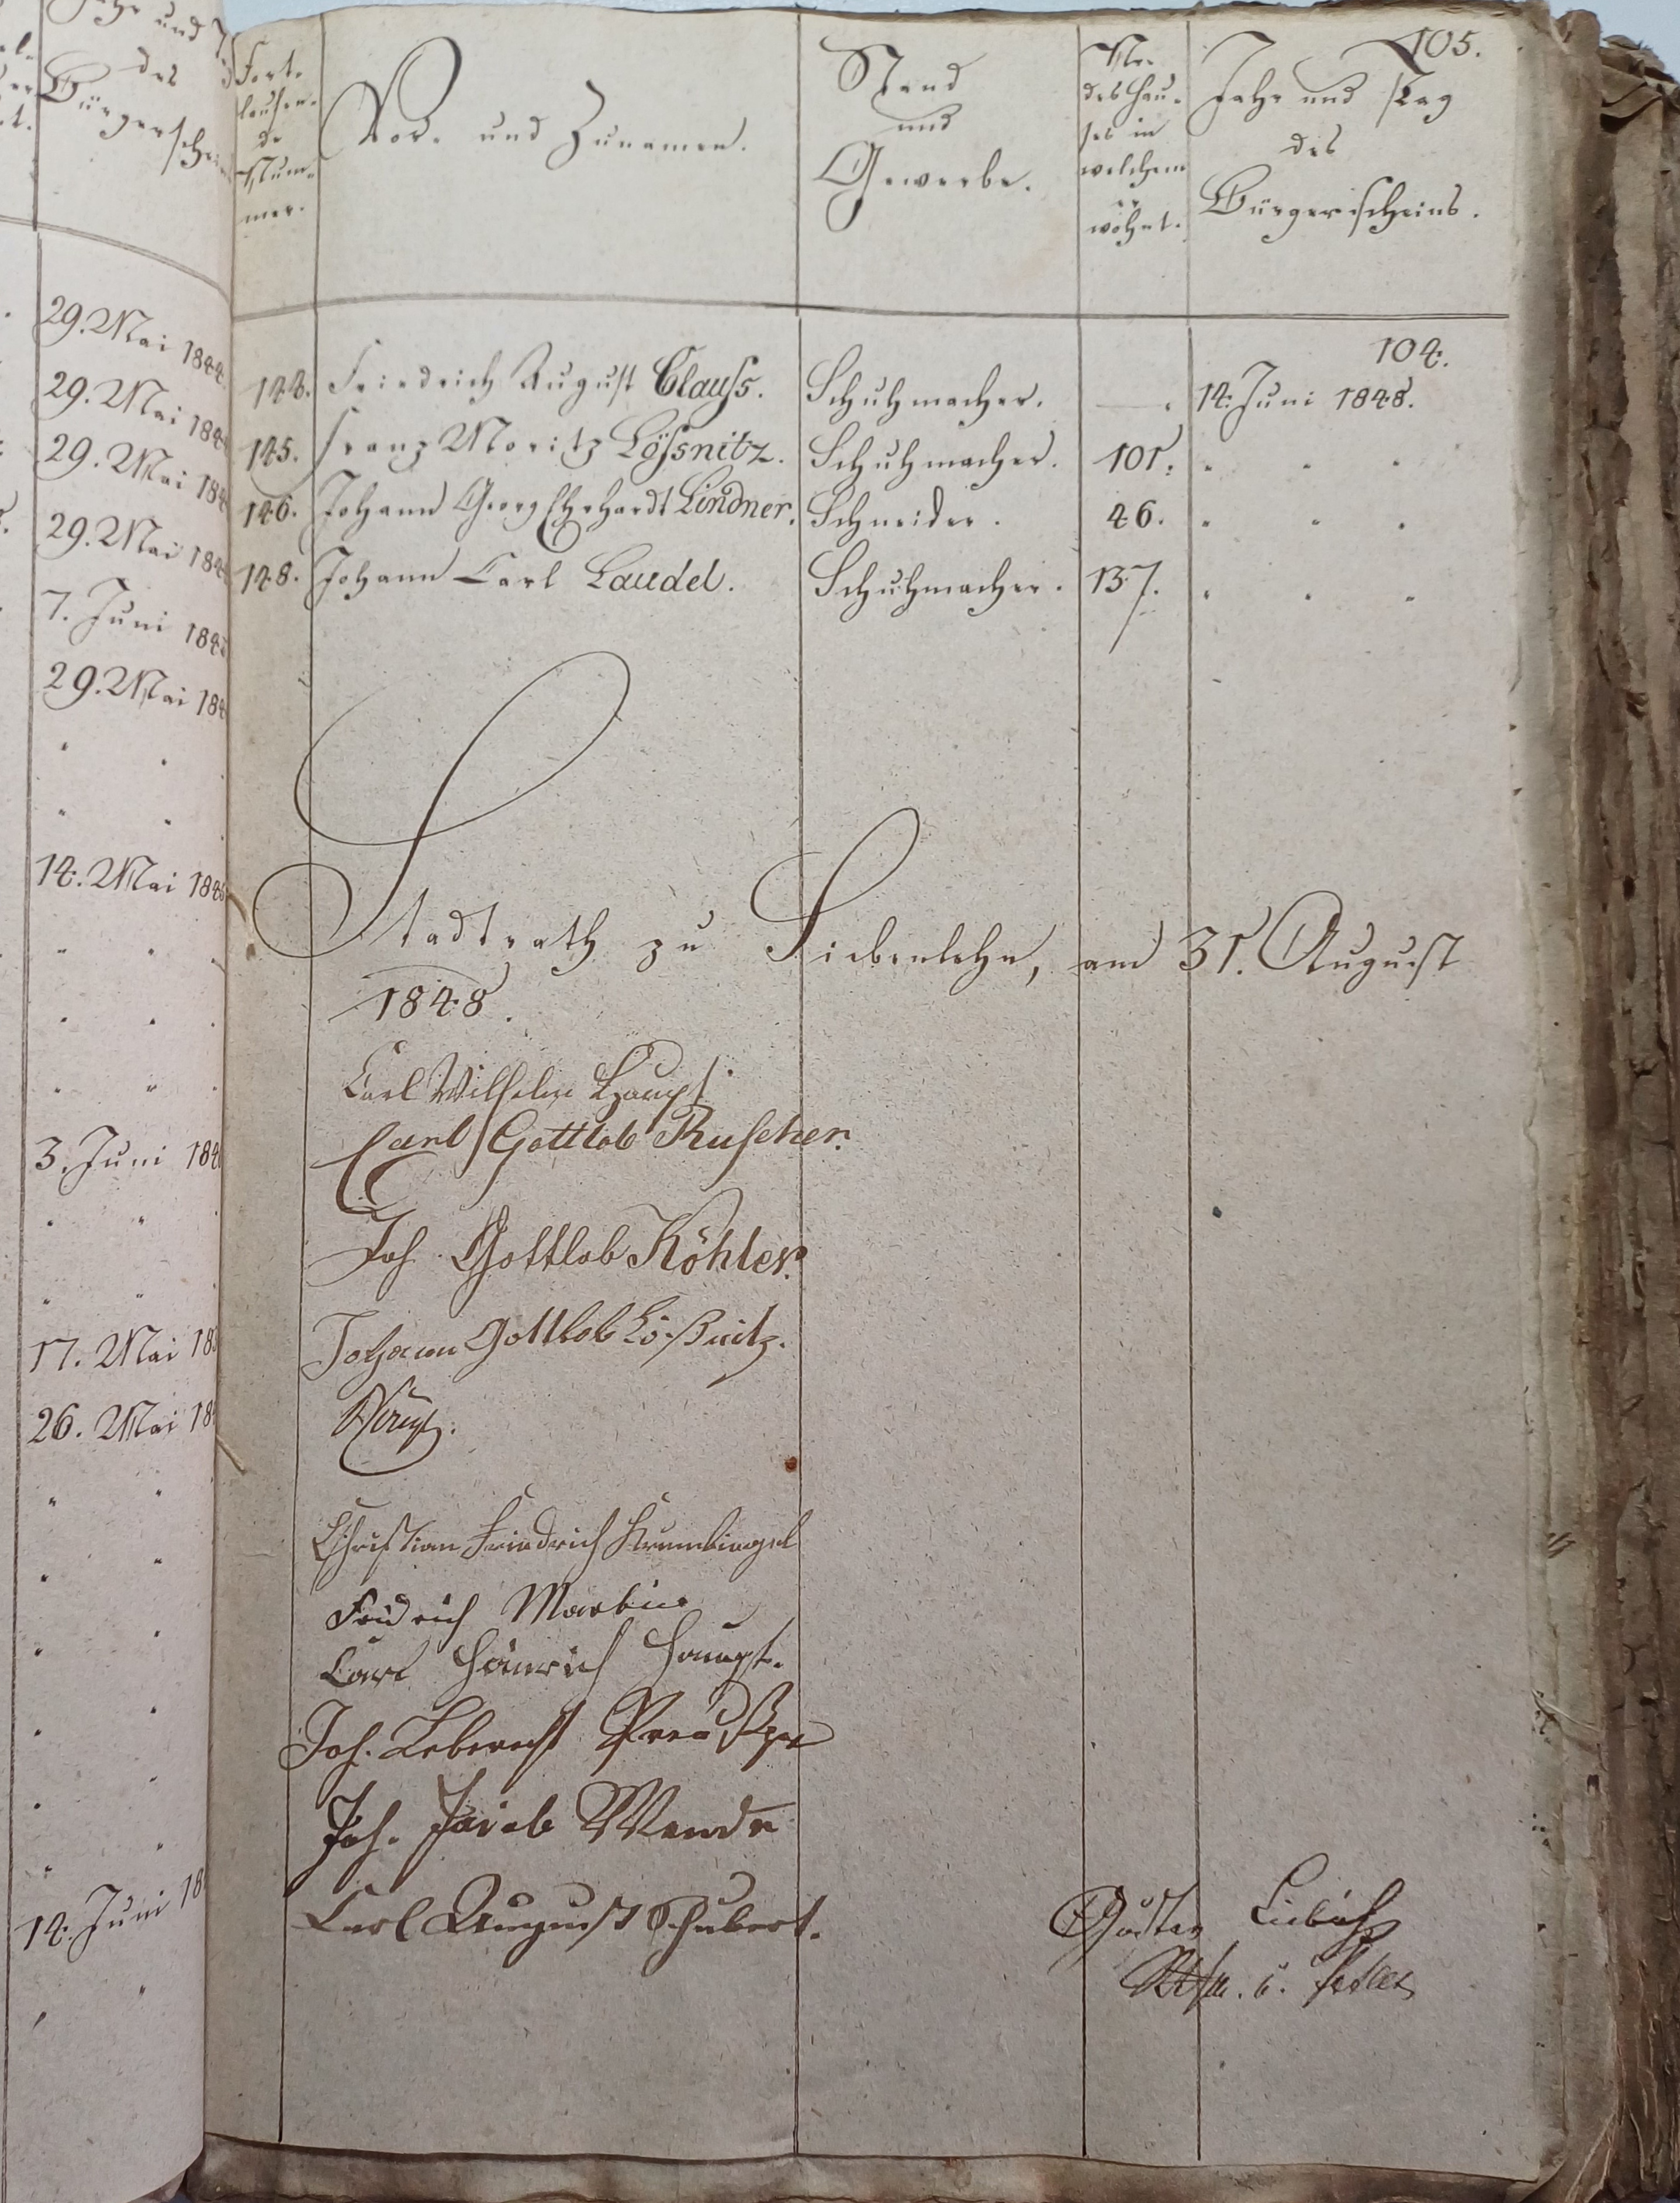 29. Mai 184
29. Mai 184
29. Mai 184
29. Mai 184
7. Juni 184
29. Mai 184
14. Mai 184
3. Juni 184
17. Mai 18
26. Mai 18
14. Juni 18
105.
Fort-
laufen-
de
Num-
mer.
Vor- und Zunamen.
Stand
und
Gewerbe.
Nr.
des Hau-
ses in
welchem
er
wohnt.
Jahr und Tag
des
Bürgerscheins.
104.
144. Friedrich August Clauß. Schuhmacher. —. 14. Juni 1848.
145. Franz Moritz Lößnitz. Schuhmacher. 101. " " "
146. Johann Georg Ehrhardt Lindner. Schneider. 46. " " "
148. Johann Carl Laudel. Schuhmacher. 137. " " "
Stadtrath zu Siebenlehn, am 31. August
1848.
Carl Wilhelm Haupt
Carl Gottlob Ruscher.
Joh. Gottlob Köhler.
Johann Gottlob Lößnitz.
Christian Friedrich Krumbiegel
Fridrich
Carl Heinrich Haupt.
Joh. Leberecht
Joh. Jacob Wende
Carl August Schubert.
Gustav